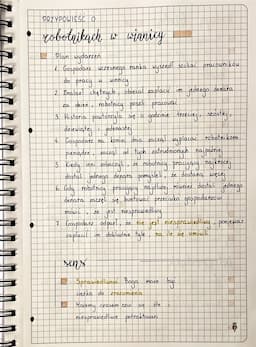 PRZYPOWIEŚĆ O
robotnikach w winnicy
Plan wydarzeń
1. Gospodarz wczesnego ranka wyszedł szukać pracowników
do pracy w winnicy
2. Znalazł chętnych, obiecał zapłacić im jednego denara
za dzień, robotnicy poszli pracować
3. Historia powtórzyła się o godzinie trzeciej, szóstej,
dziewiątej i jedenastej
4. Gospodarz na koniec dnia zaczął wypłacać robotnikom
pieniądze, zaczął od tych zatrudnionych najpóźniej
5. Kiedy inni zobaczyli, że robotnicy pracujący najkrócej
dostali jednego denara pomyśleli, że dostaną więcej
6. Gdy robotnicy pracujący najdłużej również dostali jednego
denara zaczęli się buntować przeciwko gospodarzowi
mówi, że jest niesprawiedliwy
7. Gospodarz odparł, że nie jest niesprawiedliwy, ponieważ
zapłacił im dokładnie tyle, na ile się umówili
sens
Sprawiedliwość Boga może być
ciężka do zrozumienia
Możemy czasem czuć się źle i
niesprawiedliwie potraktowani